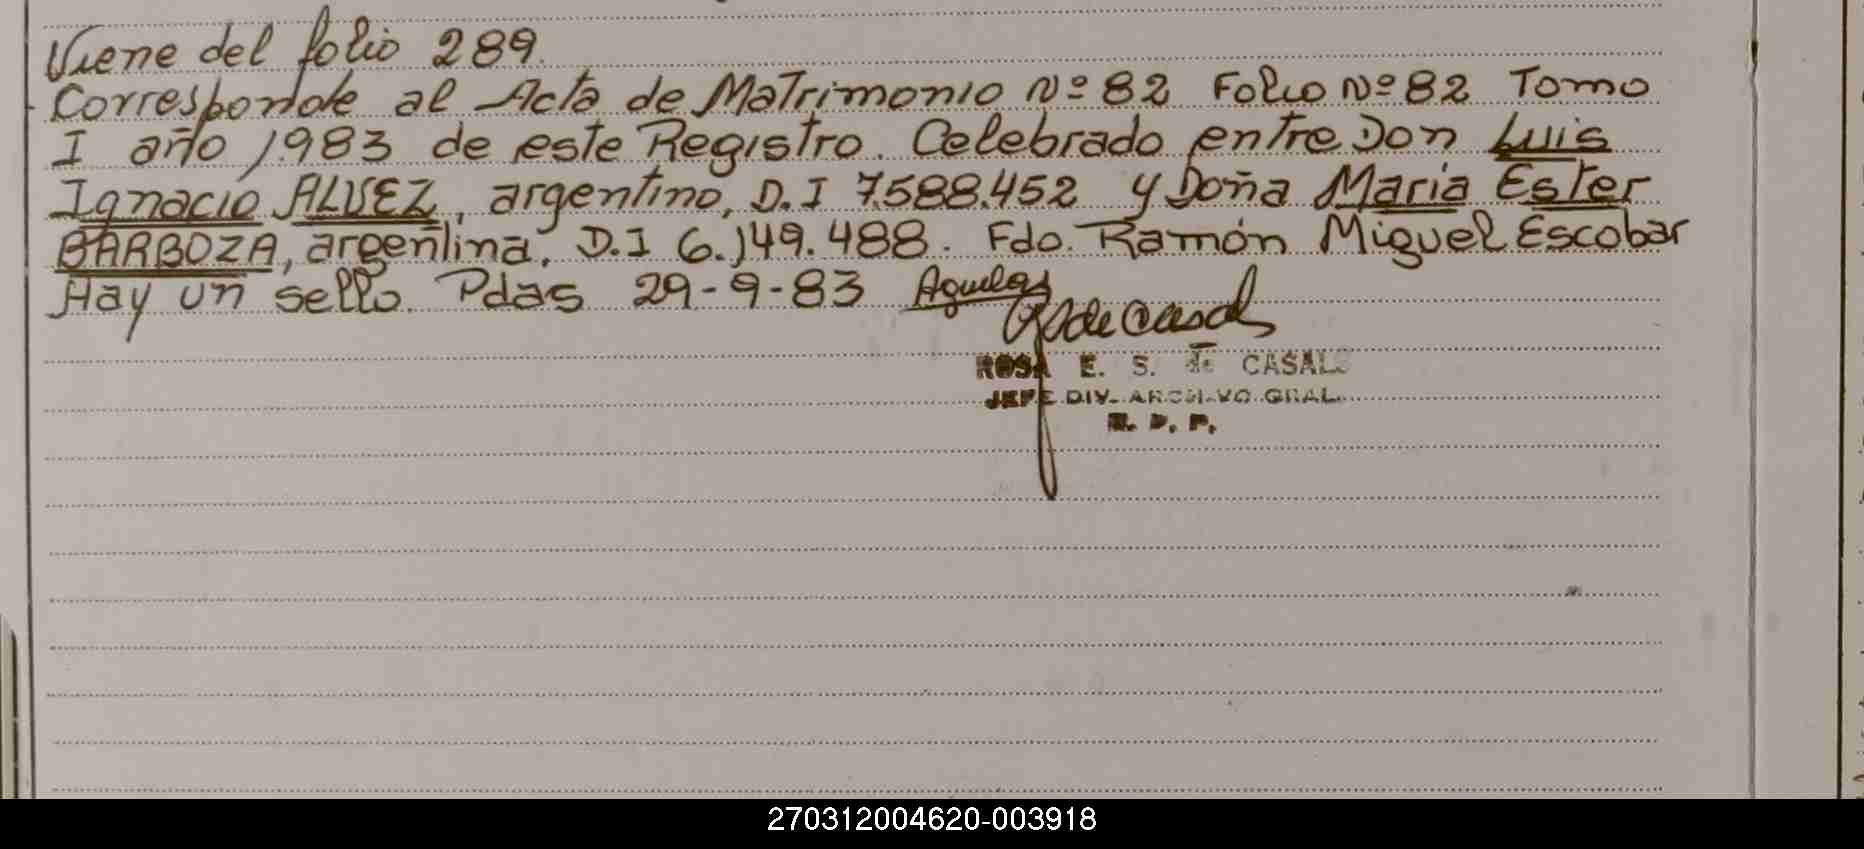 Viene del folio 289.
Corresponde al Acta de Matrimonio Nº 82 Folio Nº 82 Tomo
I año 1.983 de este Registro. Celebrado entre Don Luis
Ignacio ALVEZ, argentino, D.I 7.588.452 y Doña Maria Ester
BARBOZA, argentina, D.I 6.149.488. Fdo. Ramón Miguel Escobar
Hay un sello. Pdas 29-9-83
de Casals
ROSA E. S. de CASALS
JEFE DIV. ARCHIVO GRAL.
R. P. P.
270312004620-003918